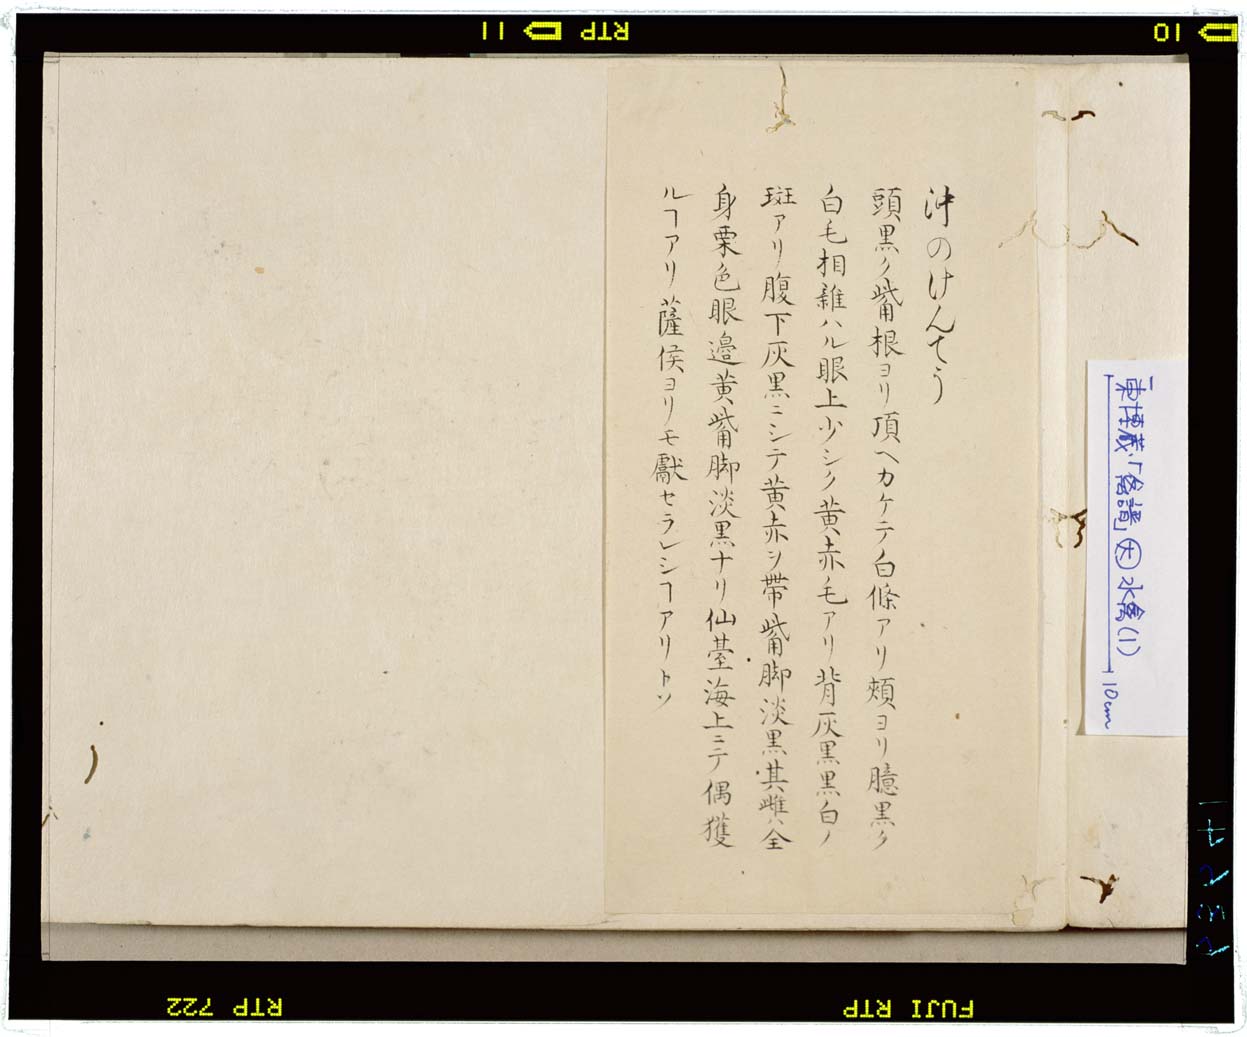 沖のけんてう
頭黒ク觜根ヨリ頂ヘカケテ白條アリ頬ヨリ臆黒ク
白毛相雜ハル眼上少シク黄赤毛アリ背灰黒黒白ノ
斑アリ腹下灰黒ニシテ黄赤ヲ帶觜脚淡黒其雌ハ全
身栗色眼邉黄觜脚淡黒ナリ仙䑓海上ニテ偶獲
ルヿアリ薩侯ヨリモ獻セラレシヿアリトソ
東博蔵「禽譜」水禽(1)
10cm
11 RTP
10
RTP 722
FUJI RTP